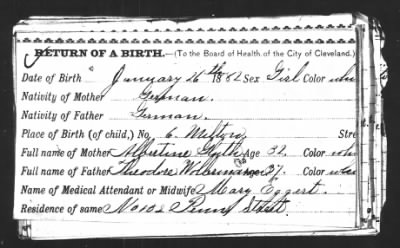 RETURN OF A BIRTH.—(To the Board of Health of the City of Cleveland.)
Date of Birth January 26th 1882 Sex Girl Color whi
Nativity of Mother German.
Nativity of Father German.
Place of Birth (of child,) No. 6 Melton Stre
Full name of Mother Albertine Age 32. Color whi
Full name of Father Theodore Age 37. Color
Name of Medical Attendant or Midwife Mary Eggert.
Residence of same No 102 Penny Street.